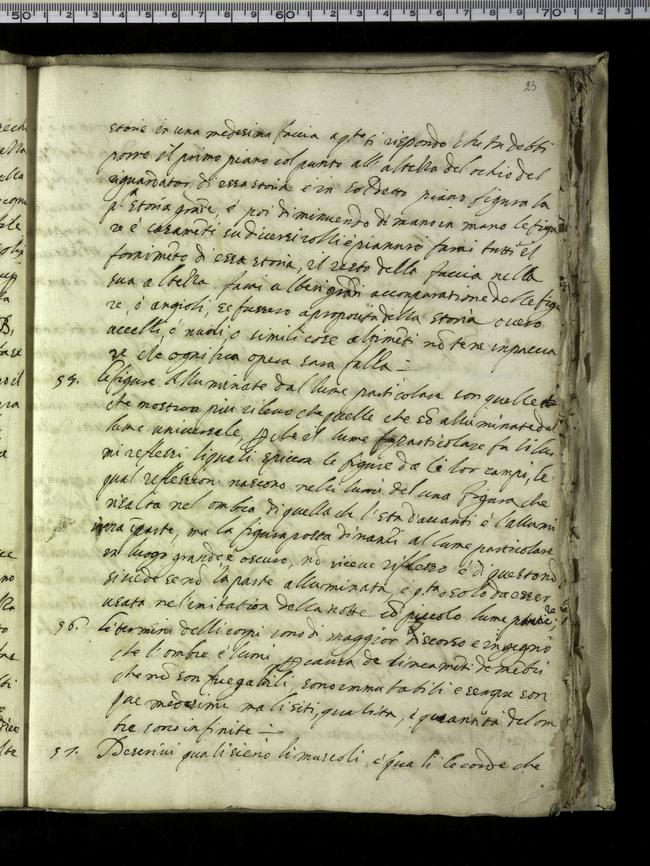 23
storie in una medesima faccia a q.to ti rispondo che tu debbi
porre il primo piano col punto all altezza del ochio del
riguardator di essa storia e in sul detto piano figura la
p.a storia grande, e poi diminuendo di mano in mano le figu
re e casamenti su diversi colli e pianure farai tutto el
fornimento di essa storia, il resto della faccia nella
sua altezza farai alberi grandi a comparatione delle figu
re, o angioli, se fussero a proposito della storia overo
uccelli, o nuvoli, o simili cose altrimenti nō te ne inpaccia
re che ogni tua opera sara falsa
55. Le figure alluminate dal lume particolare son quelle
che mostran piu rilevo che quelle che sō alluminate dal
lume universale, perche el lume particolare fa li lu
mi reflessi liquali spicca le figure da li lor campi, le
qual reflessioni nascono nelli lumi del una figura che
risalta nel ombra di quella che l'sta d'avanti e l'allumi
in parte, ma la figura posta dinanti al lume particolare
in luogo grande, e oscuro, nō riceve riflesso e di questo nō
si vede se nō la parte alluminata, e q.to e solo da esser
usata nel'imitation della notte cō piccolo lume
56. Li termini delli corpi sono di maggior discorso e ingegno
che l'ombre e lumi, p causa che lineamēti de mēbri
che nō son piegabili, sono immutabili e sempre son
que medesimi ma li siti, qualita, e quantita del om
bre sono infinite
57. Descrivi quali sieno li muscoli e quali le corde che